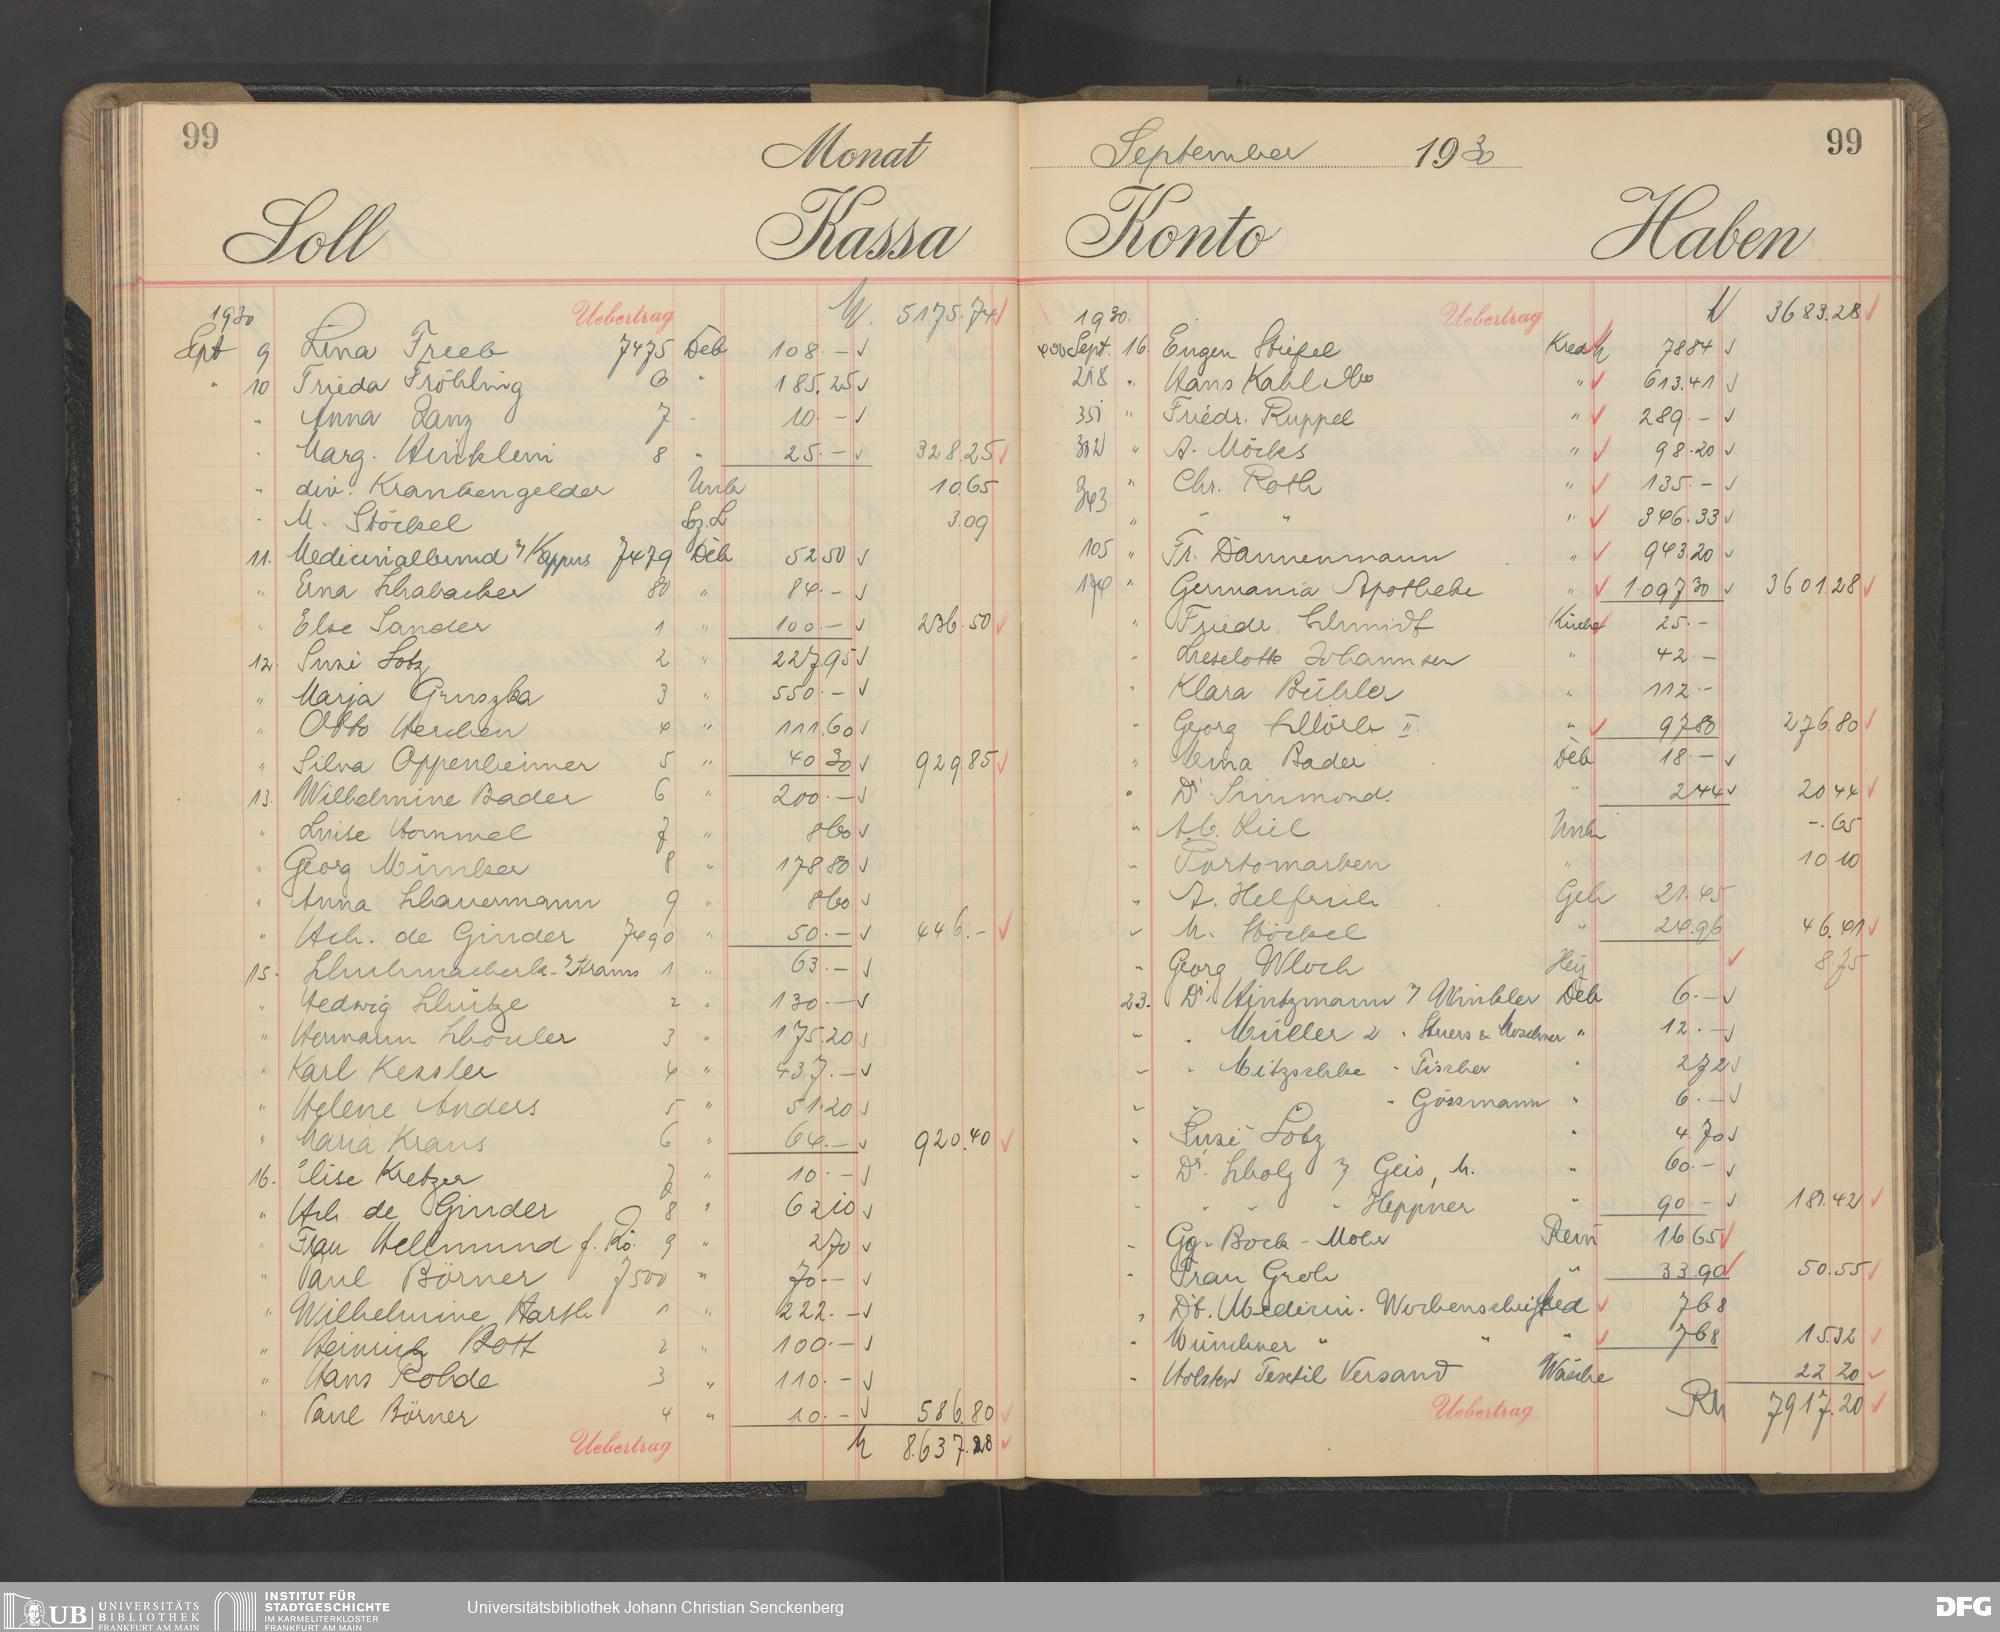 99
Monat
Soll Kassa
1930 Uebertrag M. 5175.74
Sept 9 Lina Freeb 7475 Deb 108.–
" 10 Frieda Fröhling 6 " 185.25
" Anna Lanz 7 " 10.–
" Marg. Winklein 8 " 25.– 328.25
" div. Krankengelder Unk 10.65
" M. Stöckel Soz.L 3.09
11. Medicinalbund Kappus 7479 Deb 52 50
" Erna Schabacker 80 " 84.–
" Else Sander 1 " 100.– 236.50
12. Susi Lotz 2 " 227.95
" Marja Gruszka 3 " 550.–
" Otto Herchen 4 " 111.60
" Silva Oppenheimer 5 " 40 30 929.85
13. Wilhelmine Bader 6 " 200.–
" Luise Hommel 7 " 8 60
" Georg Münker 8 " 178 80
" Anna Schauermann 9 " 8 60
" Ach. de Ginder 7490 " 50.– 446.–
15. Kraus 1 " 63.–
" Hedwig Schütze 2 " 130.–
" Hermann Schouler 3 " 175.20
" Karl Kessler 4 " 437.–
" Helene Anders 5 " 51.20
" Maria Kraus 6 " 64.– 920.40
16. Elise Kretzer 7 " 10.–
" Ach. de Ginder 8 " 62 10
" Frau Hellmund f. Rö. 9 " 2 70
" Paul Börner 7500 " 70.–
" Wilhelmine Harth 1 " 222.–
" Heinrich Bott 2 " 100.–
" Hans Rohde 3 " 110.–
" Paul Börner 4 " 10.– 586.80
Uebertrag M 8637.28
September 1930
99
Konto Haben
1930. Uebertrag M 3683.28
Sept. 16. Eugen Stiefel Kred M 78 84
218 " Hans Kahl " 613.41
351 " Friedr. Ruppel " 289.–
" A. Möcks " 98.20
343 " Chr. Roth " 135.–
" " " " 346.33
105 " Fr. Dannenmann " 943.20
174 " Germania Apotheke " 1097 30 3601.28
" Friedr. Schmidt Küche 25.–
" Lieselotte Johannsen " 42.–
" Klara Bühler " 112.–
" Georg Schlörb II. " 97 80 276.80
" Erna Bader Deb 18.–
" Dr. Simmonds " 2 44 20 44
" Ab. Kiel Unk –.65
" Portomarken " 10 10
" A. Helfrich Geh 21.45
" M. Stöckel " 24.96 46.41
" Georg Wloch Heiz 8.75
23. Dr. Hintzmann Winkler Deb 6.–
" " Müller 2 " Stuers & Moschner " 12.–
" " Mitzschke " Fischer " 2 72
" " " Gössmann " 6.–
" Susi Lotz " 4.70
" Dr. Scholz Geis, M. " 60.–
" " " " Heppner " 90.– 181.42
" Gg. Bock-Mohr Rein 16 65
" Frau Groh " 33.90 50.55
" Dt. Medicin. Wochenschrift Med 7 68
" Münchner " " " 7 68 15.32
" Holsten Textil Versand Wäsche 22 20
Uebertrag RM 7917.20
UB UNIVERSITÄTS
BIBLIOTHEK
FRANKFURT AM MAIN
INSTITUT FÜR
STADTGESCHICHTE
IM KARMELITERKLOSTER
FRANKFURT AM MAIN
Universitätsbibliothek Johann Christian Senckenberg
DFG